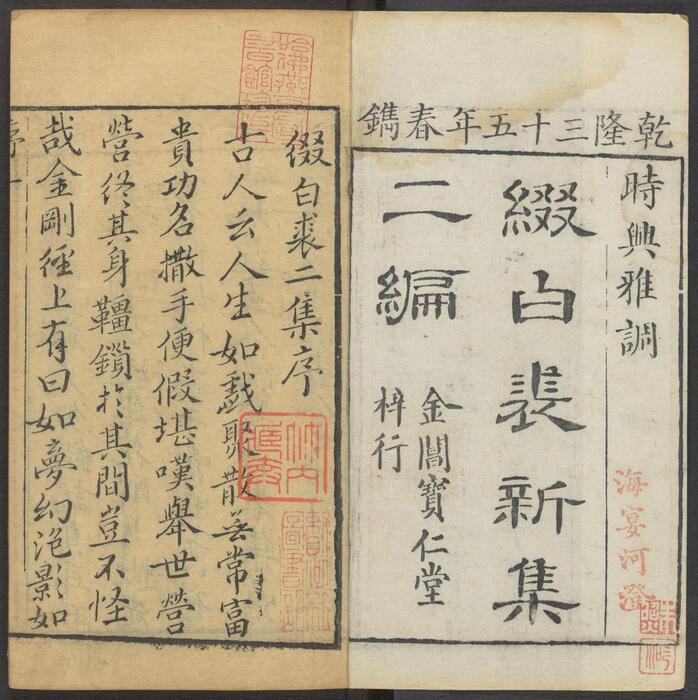 乾隆三十五年春鐫
時興雅調
海宴河澄
綴白裘新集
二編
金閶寶仁堂
梓行
綴白裘二集序
古人云人生如戯聚散無常富
貴功名撒手便假堪嘆舉世營
營終其身韁鎖於其間豈不怪
哉金剛徑上有曰如夢幻泡影如
序一